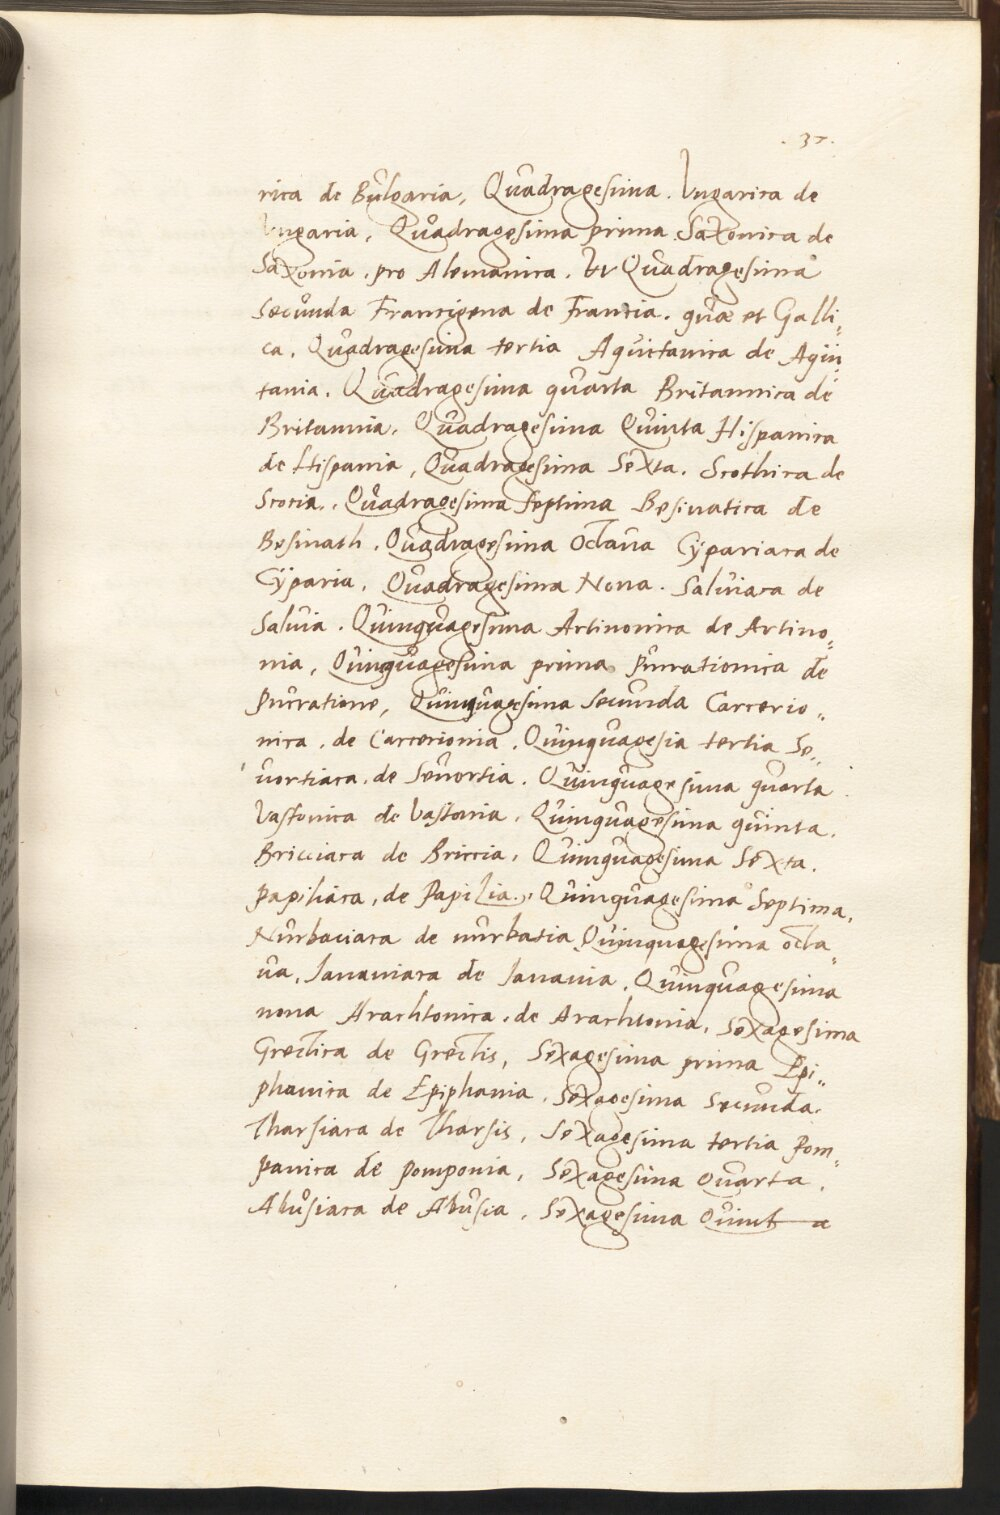 . 37.
rica de Bulgaria, Quadragesima. Vngarica de
Vngaria, Quadragesima prima Saxonica de
Saxonia. pro Alemanica. Vt Quadragesima
secunda Francigena de Francia. quæ et Galli„
ca. Quadragesima tertia Aquictanica de Aqui„
tania. Quadragesima quarta Britannica de
Britannia. Quadragesima Quinta Hispanica
de Hispania, Quadragesima Sexta. Scothica de
Scocia., Quadragesima septima Besinatica de
Besinath. Quadragesima Octaua Cÿpariaca de
Cÿparia. Quadragesima Nona. Saluiaca de
Saluia. Quinquagesima Artinonica de Artino„
nia, Quinquagesima prima Purrationica de
Purratione, Quinquagesima secunda Carcerio„
nica. de Carcerionia. Quinquagesia tertia Se„
uortiaca. de Seuortia. Quinquagesima quarta
Vastonica de Vastonia. Quinquagesima quinta.
Bricciaca de Briccia, Quinquagesima Sexta.
Papiliaca, de Papilia., Quinquagesima Septima,
Nurbaciaca de nurbatia Quinquagesima octa„
ua. Ianauiaca de Ianauia. Quinquagesima
nona Arachtonica. de Arachtonia. Sexagesima
Grectica de Grectis, Sexagesima prima Epi„
phanica de Epiphania. Sexagesima Secunda.
Tharsiaca de Tharsis, Sexagesima tertia Pom„
panica de pomponia, Sexagesima Quarta.
Abusiaca de Abusia. Sexagesima Quinta